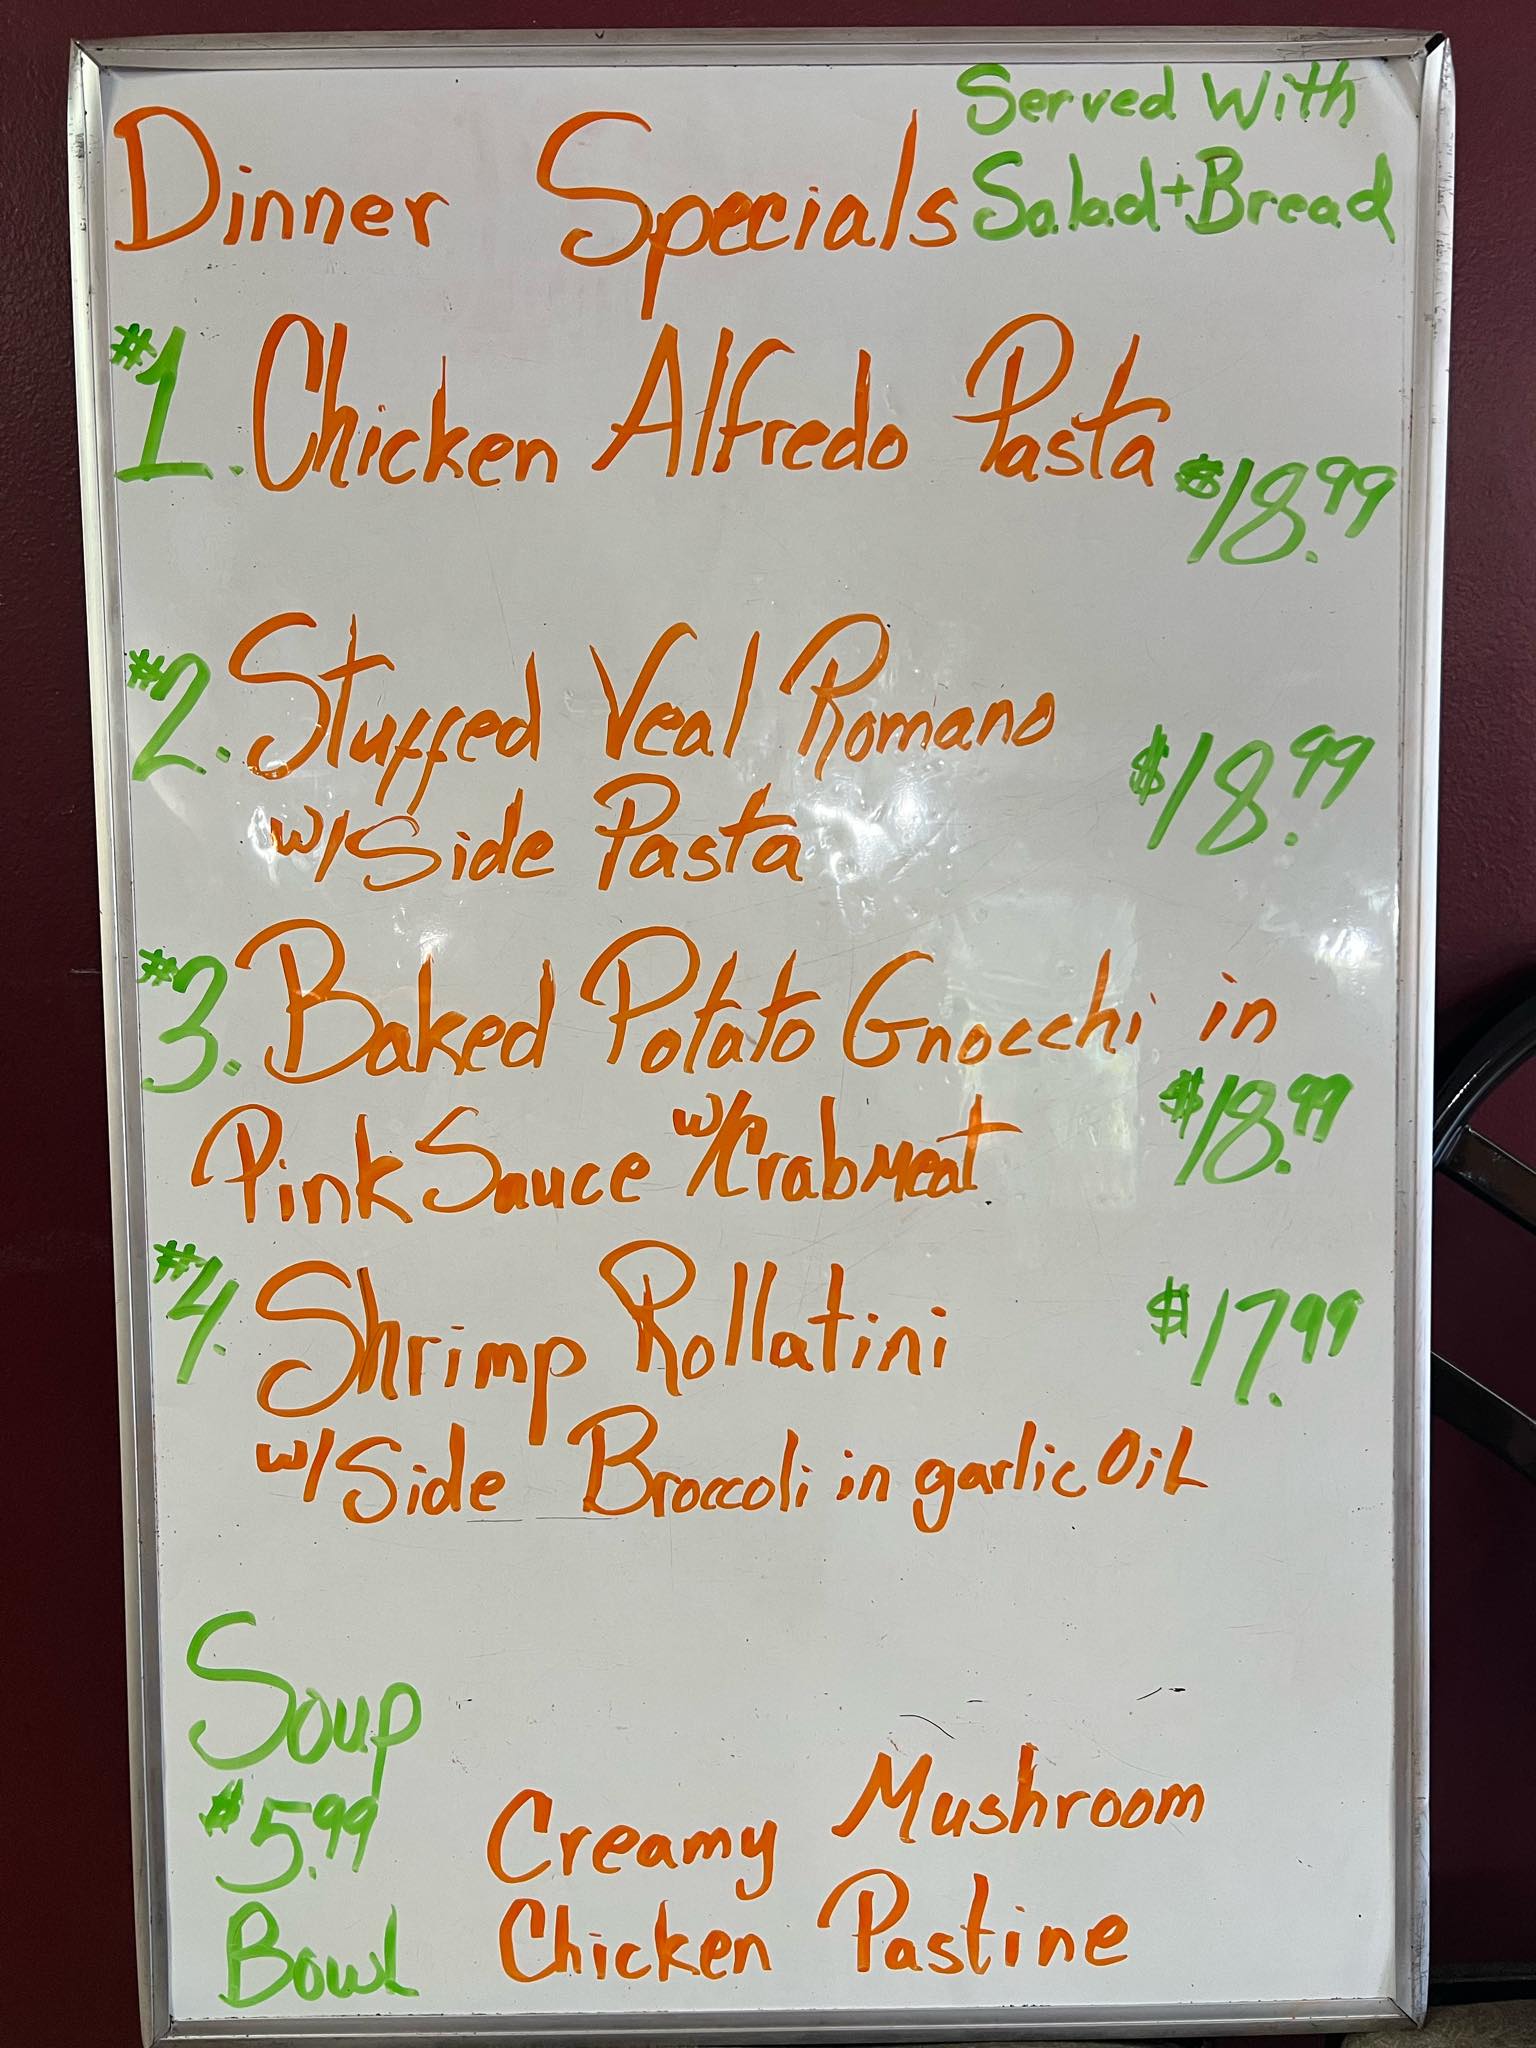 Dinner Specials
Served With
Salad + Bread
#1. Chicken Alfredo Pasta
$18.99
#2. Stuffed Veal Romano
w/ Side Pasta
$18.99
#3. Baked Potato Gnocchi in
Pink Sauce w/ Crabmeat
$18.99
#4. Shrimp Rollatini
$17.99
w/ Side Broccoli in garlic Oil
Soup
$5.99
Bowl
Creamy Mushroom
Chicken Pastine